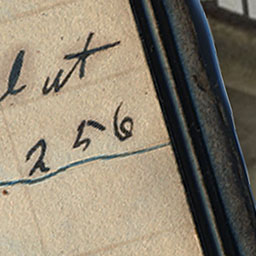 ut
256